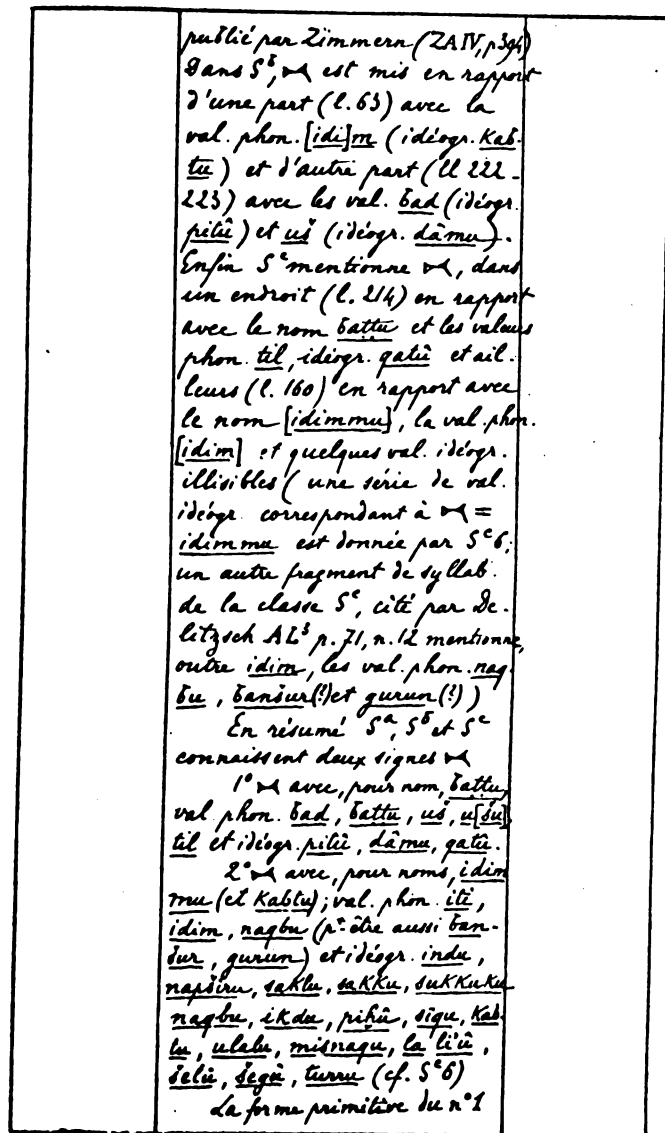 publié par Zimmern (ZA IV, p 394)
Dans Sᵇ, 𒁁 est mis en rapport
d'une part (l. 63) avec la
val. phon. [idi]m (idéogr. kab-
tu) et d'autre part (ll 222-
223) avec les val. bad (idéogr.
pitû) et uš (idéogr. dâmu).
Enfin Sᶜ mentionne 𒁁, dans
un endroit (l. 214) en rapport
avec le nom battu et les valeurs
phon. til, idéogr. qatû et ail-
leurs (l. 160) en rapport avec
le nom [idimmu], la val. phon.
[idim] et quelques val. idéogr.
illisibles (une série de val.
idéogr. correspondant à 𒁁 =
idimmu est donnée par Sᶜ 6;
un autre fragment de syllab.
de la classe Sᶜ, cité par De-
litzsch AL³ p. 71, n. 12 mentionne,
outre idim, les val. phon. nag-
bu, banšur (!) et gurun (!) )
En résumé Sᵃ, Sᵇ et Sᶜ
connaissent deux signes 𒁁
1° 𒁁 avec, pour nom, battu,
val. phon. bad, battu, uš, u[šu]
til et idéogr. pitû, dâmu, qatû.
2° 𒁁 avec, pour noms, idim
mu (et kabtu); val. phon. iti,
idim, nagbu (pᵗ-être aussi ban-
šur, gurun) et idéogr. indu,
napširu, saklu, sakku, sukkuku
nagbu, ikdu, piḫû, siqu, kab-
tu, ulalu, misnaqu, la li'û,
šelû, šegû, turru (cf. Sᶜ 6)
La forme primitive du n° 1